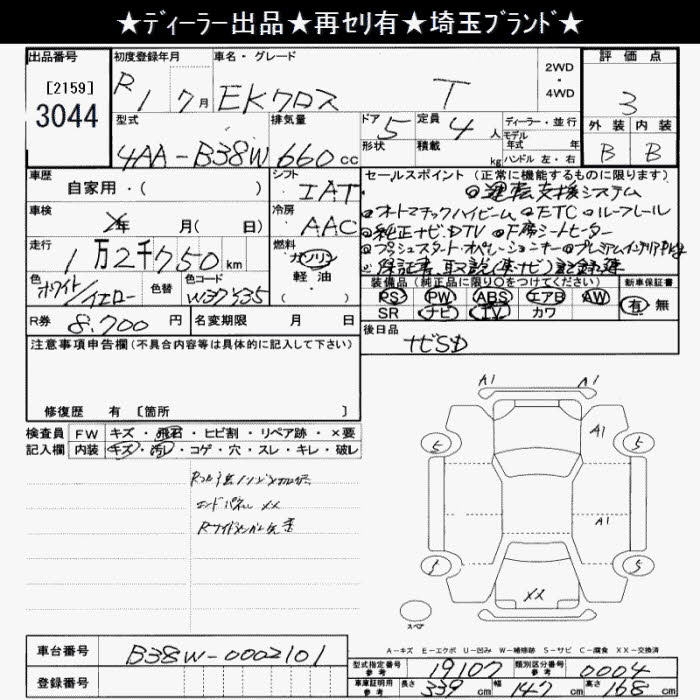 ★ディーラー出品★再セリ有★埼玉ブランド★
出品番号
[2159]
3044
初度登録年月
R 1 7月
車名・グレード
EKクロス T
2WD
・
4WD
評価点
3
外装 内装
B B
型式
4AA-B38W
排気量
660cc
ドア
5
形状
定員
4人
積載
kg
ディーラー・並行
モデル
年式 年
ハンドル 左・右
車歴
自家用・( )
シフト
IAT
車検
年 月( 日)
冷房
AAC
走行
1万2千750km
燃料
ガソリン
軽・油
( )
色
ホワイト/イエロー
色替
色コード
W37Y35
R券
8,700円
名変期限 月 日
セールスポイント(正常に機能するものに限ります)
◎運転支援システム
◎オートマチックハイビーム ◎ETC ◎ルーフレール
◎純正ナビDTV ◎F席シートヒーター
◎保証書、取説(車・ナビ)記録簿
装備品(純正品に限り○をつけてください)
PS PW ABS エアB AW
SR ナビ TV カワ
新車保証書
有 無
後日品
ナビSD
注意事項申告欄(不具合内容等は具体的に記入して下さい)
修復歴 有 〔箇所 〕
検査員
記入欄
FW キズ・飛石・ヒビ割・リペア跡・×要
内装 キズ・汚レ・コゲ・穴・スレ・キレ・破レ
エンドパネル XX
A1 A1
A1
5 5
A1
1 5
XX
スペア
A-キズ E-エクボ U-凹み W-補修跡 S-サビ C-腐食 XX-交換済
車台番号
B38W-0002101
登録番号
型式指定番号
参考
19107
類別区分番号
参考
0004
車庫証明用
参考
長さ 339cm 幅 147cm 高さ 168cm